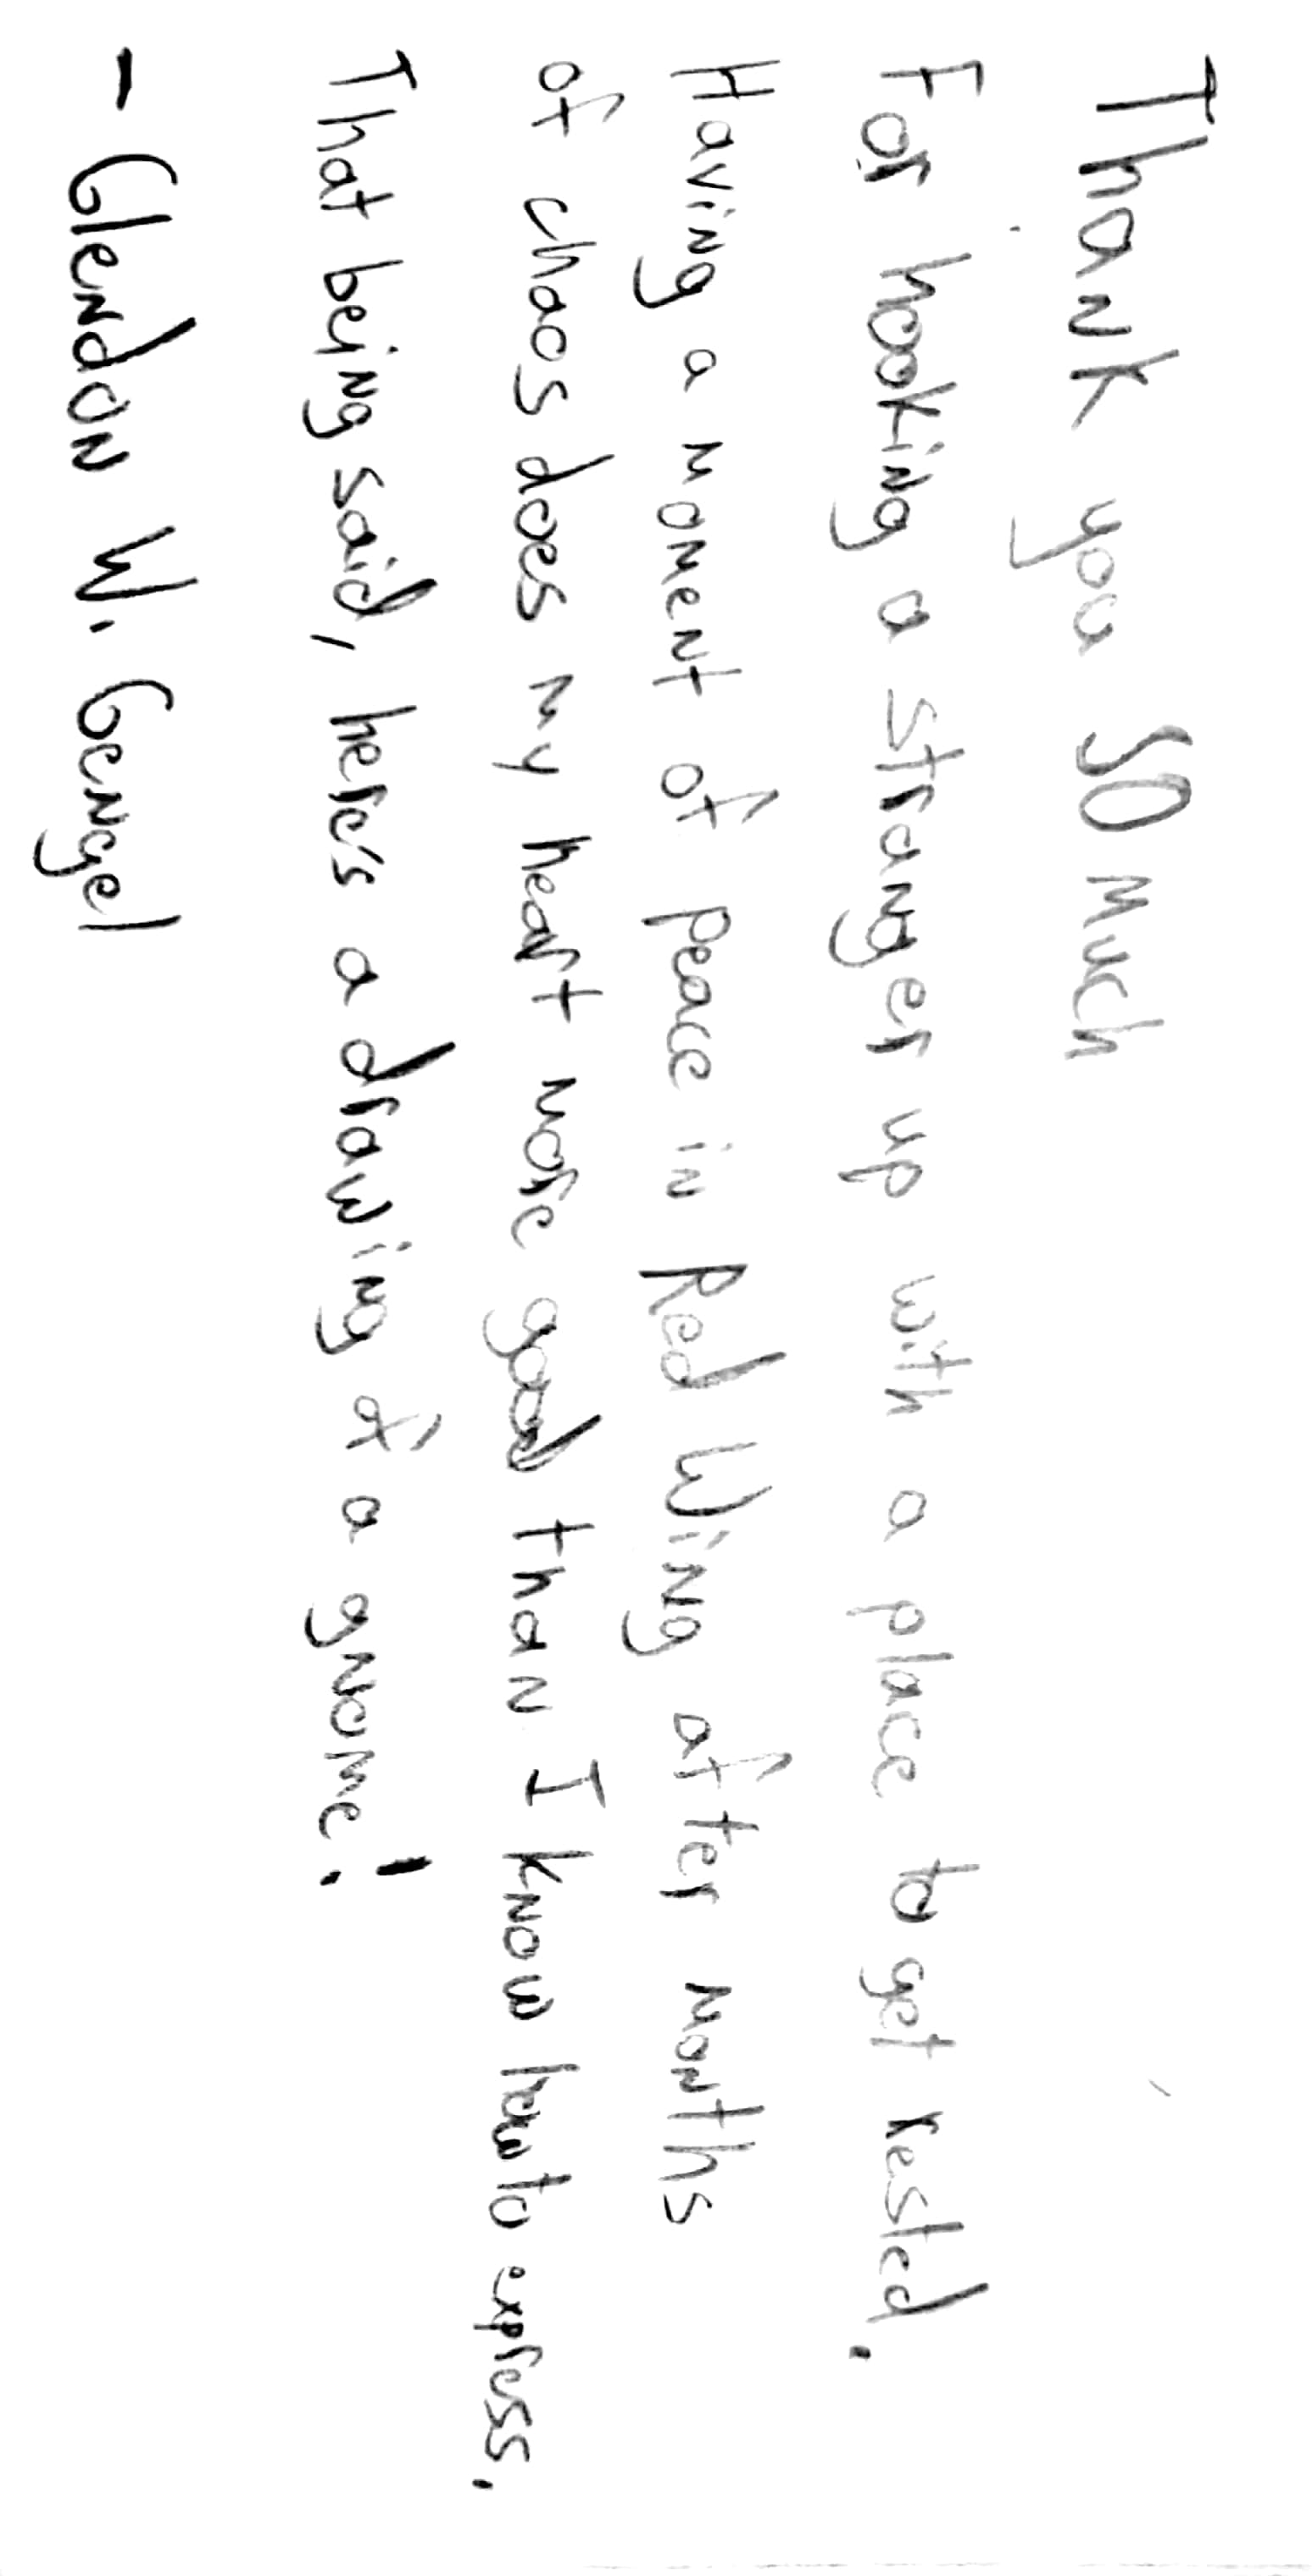 Thank you SO Much
For hooking a stranger up with a place to get rested.
Having a moment of peace in Red Wing after months
of chaos does my heart more good than I know how to express.
That being said, here's a drawing of a gnome!
- Glendon W. Gengel